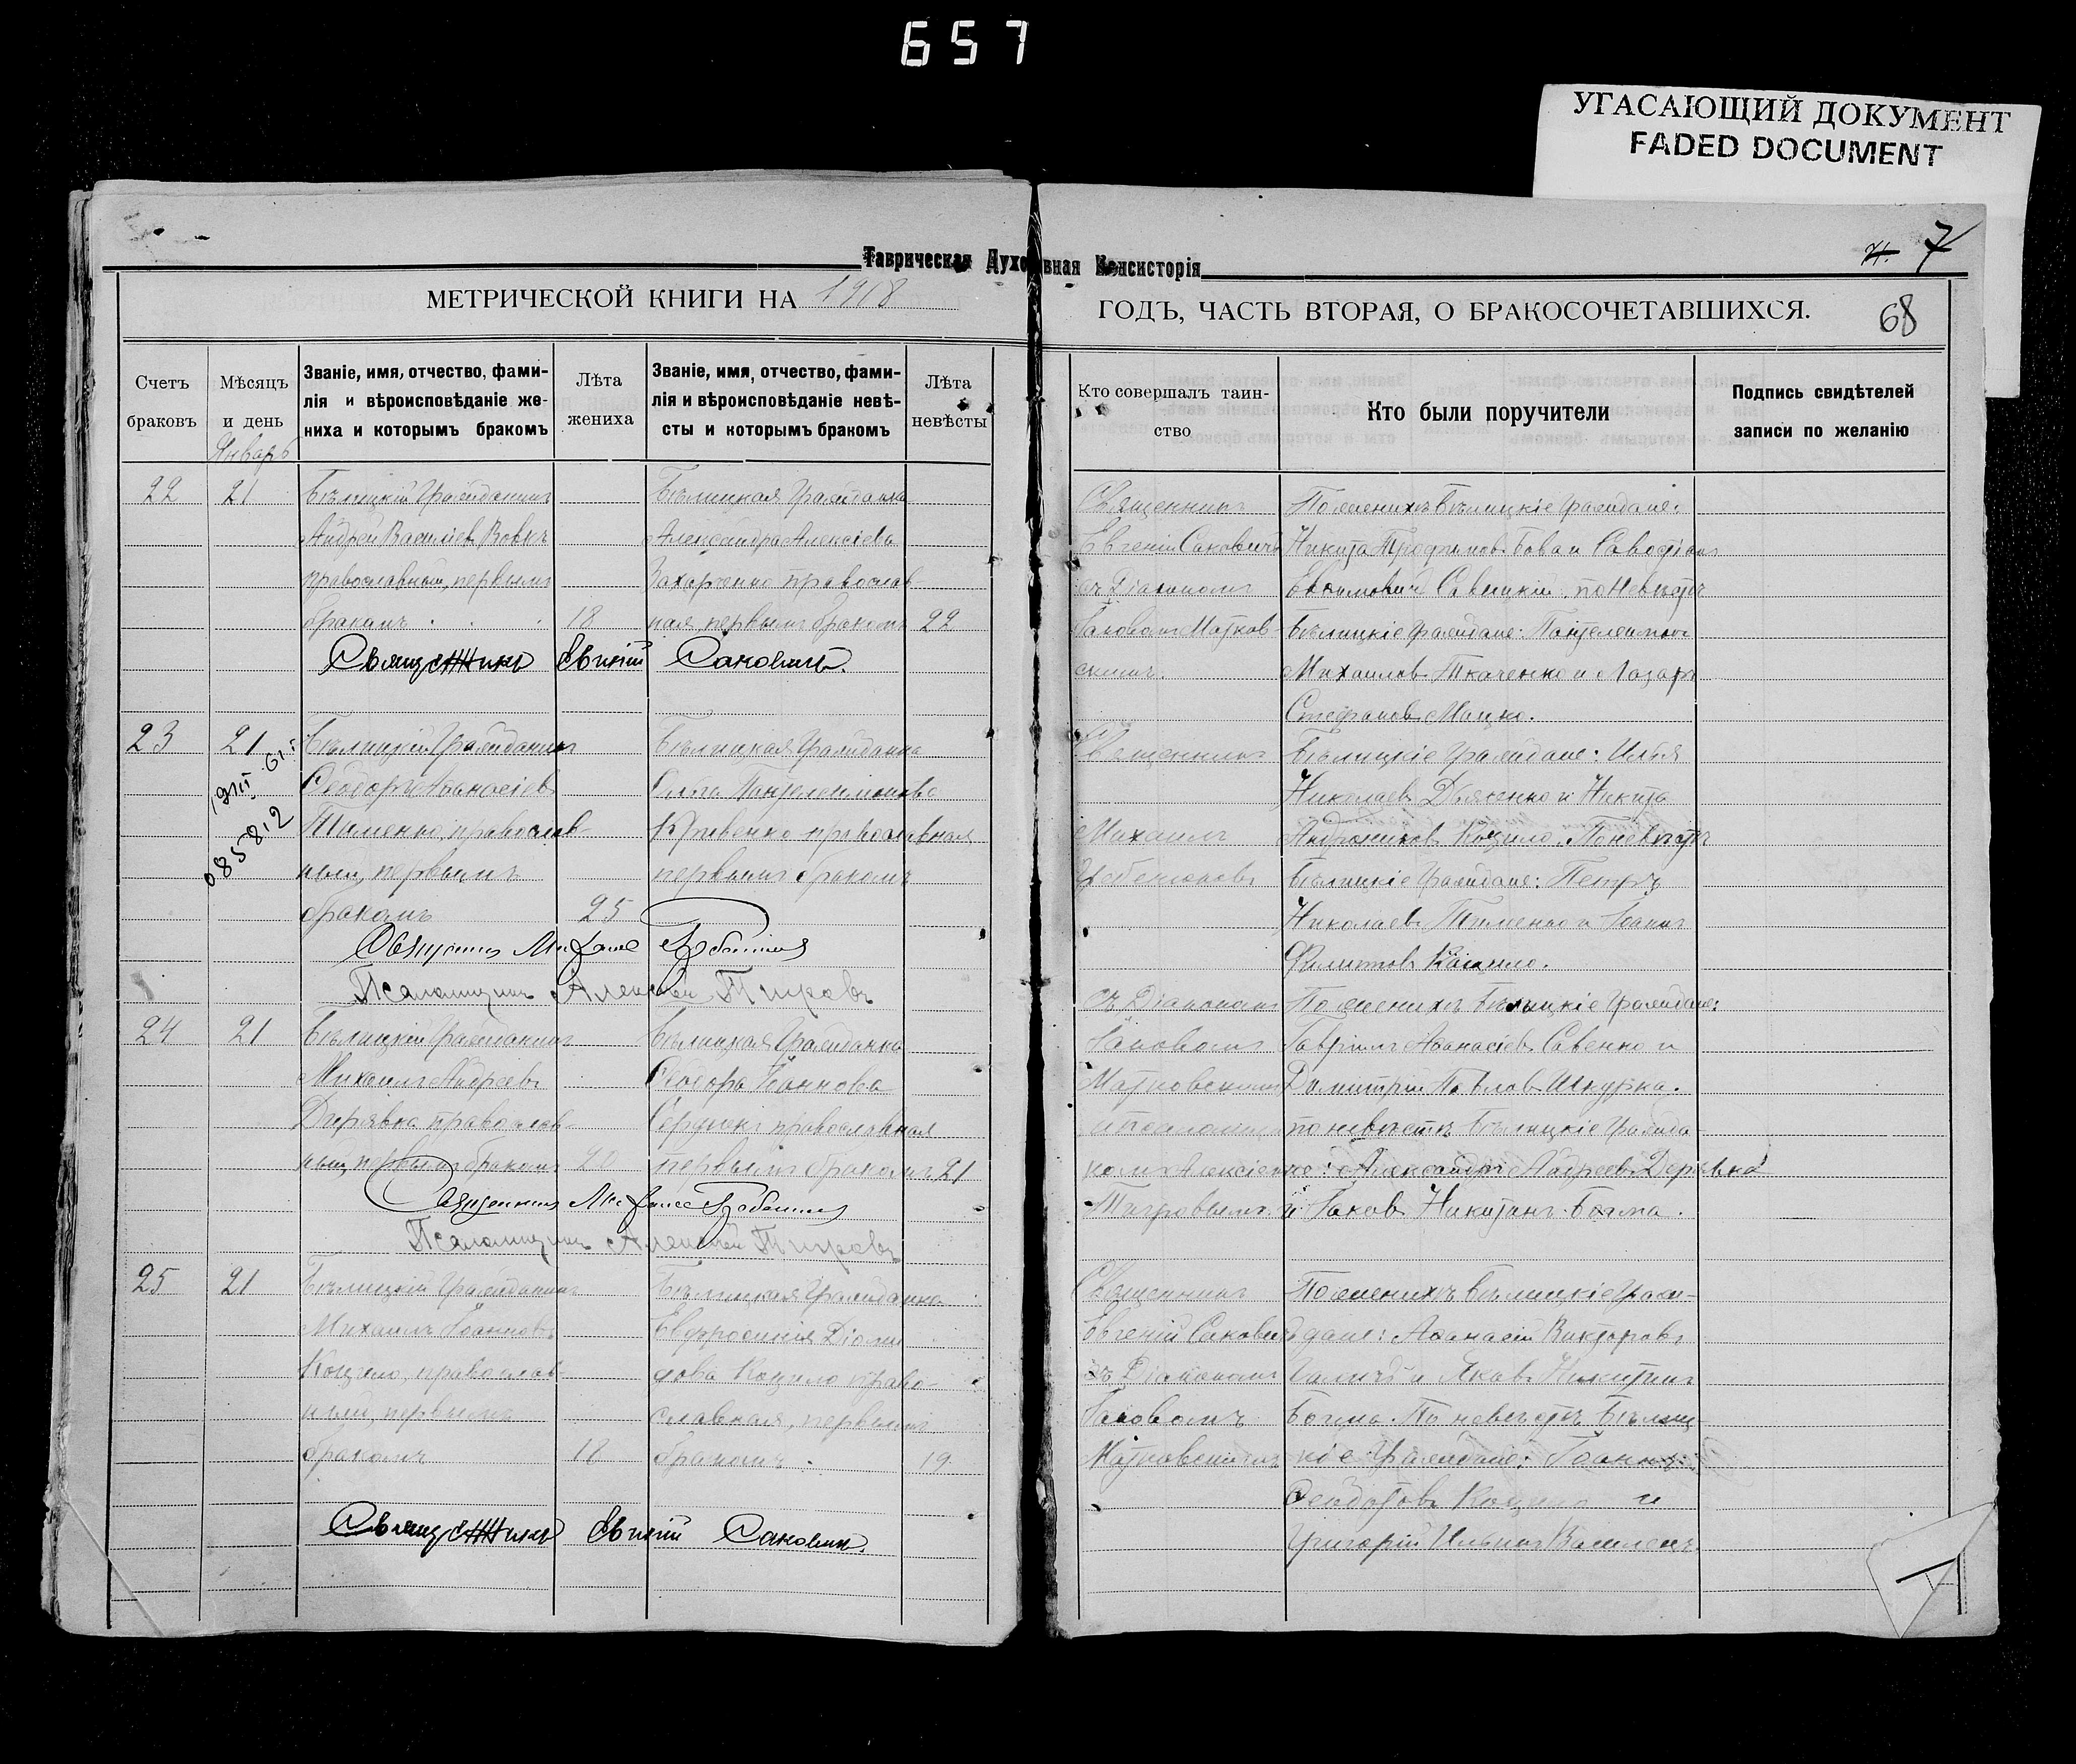 657
УГАСАЮЩИЙ ДОКУМЕНТ
FADED DOCUMENT
Таврическая Духовная Консисторія
7
МЕТРИЧЕСКОЙ КНИГИ НА 1918
ГОДЪ, ЧАСТЬ ВТОРАЯ, О БРАКОСОЧЕТАВШИХСЯ.
68
Счетъ браковъ
Мѣсяцъ и день
Званіе, имя, отчество, фами-
лія и вѣроисповѣданіе же-
ниха и которымъ бракомъ
Лѣта жениха
Званіе, имя, отчество, фами-
лія и вѣроисповѣданіе невѣ-
сты и которымъ бракомъ
Лѣта невѣсты
Кто совершалъ таин-
ство
Кто были поручители
Подпись свидѣтелей
записи по желанію
Январь
22 21 Бѣлицкій Гражданинъ
Андрей Васильевъ Вовкъ
православный, первымъ
бракомъ 18
Бѣлицкая Гражданка
Александра Алексіева
Захарченко православ
ная, первымъ бракомъ 22
Священникъ
Евгеній Саковичъ
съ Діакономъ
Іаковомъ Матков-
скимъ.
По женихѣ Бѣлицкіе граждане:
Никита Трофимовъ Бова и
Савицкій. по Невѣстѣ
Бѣлицкіе Граждане: Пантелеимонъ
Михаиловъ Ткаченко и Лазарь
Стефановъ Мацко.
Священникъ Евгеній Саковичъ.
23 21 Бѣлицкій Гражданинъ
Ѳеодоръ Аѳанасіевъ
Тименко, православ-
ный, первымъ
бракомъ 25
Бѣлицкая Гражданка
Ольга Пантелеимонова
Кривенко православная
первымъ бракомъ
19III 61 г
085812
Священникъ
Михаилъ
Бѣлицкіе Граждане: Илья
Николаевъ Дяченко и Никита
Андрониковъ Коцило. По невѣстѣ
Бѣлицкіе Граждане: Петръ
Николаевъ Тименко и Іоаннъ
Филиповъ
Священникъ Михаилъ
Псаломщикъ Алексѣй
24 21 Бѣлицкій Гражданинъ
Михаилъ Андреевъ
Дерявка православ-
ный, первымъ бракомъ 20
Бѣлицкая Гражданка
Ѳеодора Іоаннова
Сердюкъ православная
первымъ бракомъ 21
съ Діакономъ
Іаковомъ
Матковскимъ
По женихѣ Бѣлицкіе Граждане:
Гавріилъ Аѳанасіевъ Савенко и
Димитрій Павловъ Шкурка.
по невѣстѣ Бѣлицкіе Гражда-
не: Александръ Андреевъ Дерявка
и Іаковъ Никитинъ Богма.
Священникъ Михаилъ
Псаломщикъ Алексѣй
25 21 Бѣлицкій Гражданинъ
Михаилъ Іоанновъ
Коцило, православ-
ный, первымъ
бракомъ 18
Бѣлицкая Гражданка
Евфросинія Діоми
дова Коцило право-
славная, первымъ
бракомъ 19
Священникъ
Евгеній Саковичъ
съ Діакономъ
Іаковомъ
Матковскимъ
По женихѣ Бѣлицкіе Граж-
дане: Аѳанасій Викторовъ
и Яковъ Никитинъ
Богма. По невѣстѣ Бѣлиц-
кіе Граждане: Іоаннъ
Ѳеодотовъ Коцило и
Григорій Ильинъ Василецъ.
Священникъ Евгеній Саковичъ.